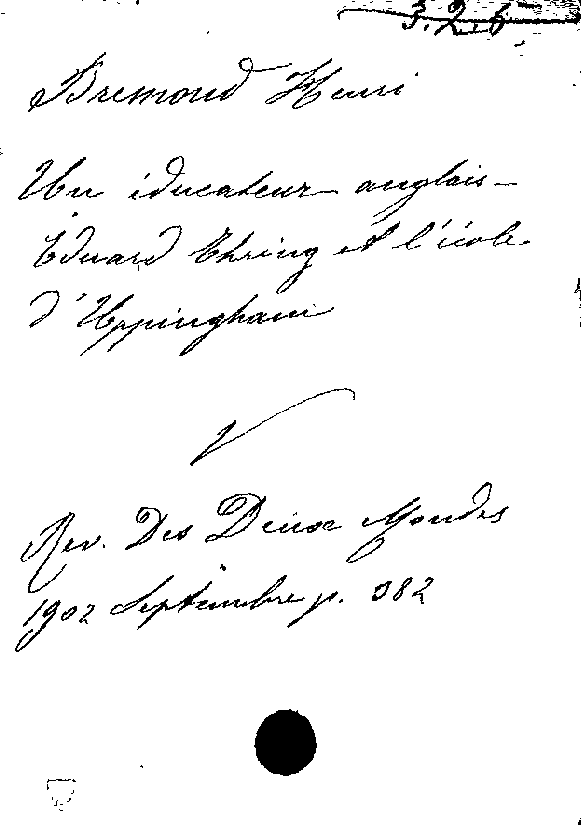 3.2.6
Bremond Henri
Un éducateur anglais –
Eduard Thring et l'école
d'Uppingham
V
Rev. Des Deux Mondes
1902 Septembre p. 382